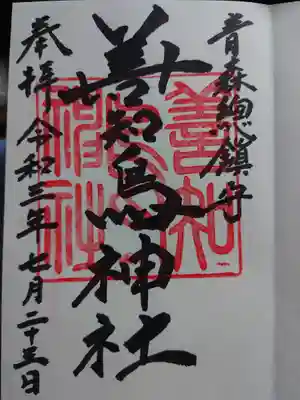 青森總鎮守
善知鳥神社
奉拝 令和三年 七月二十三日
善知鳥神社